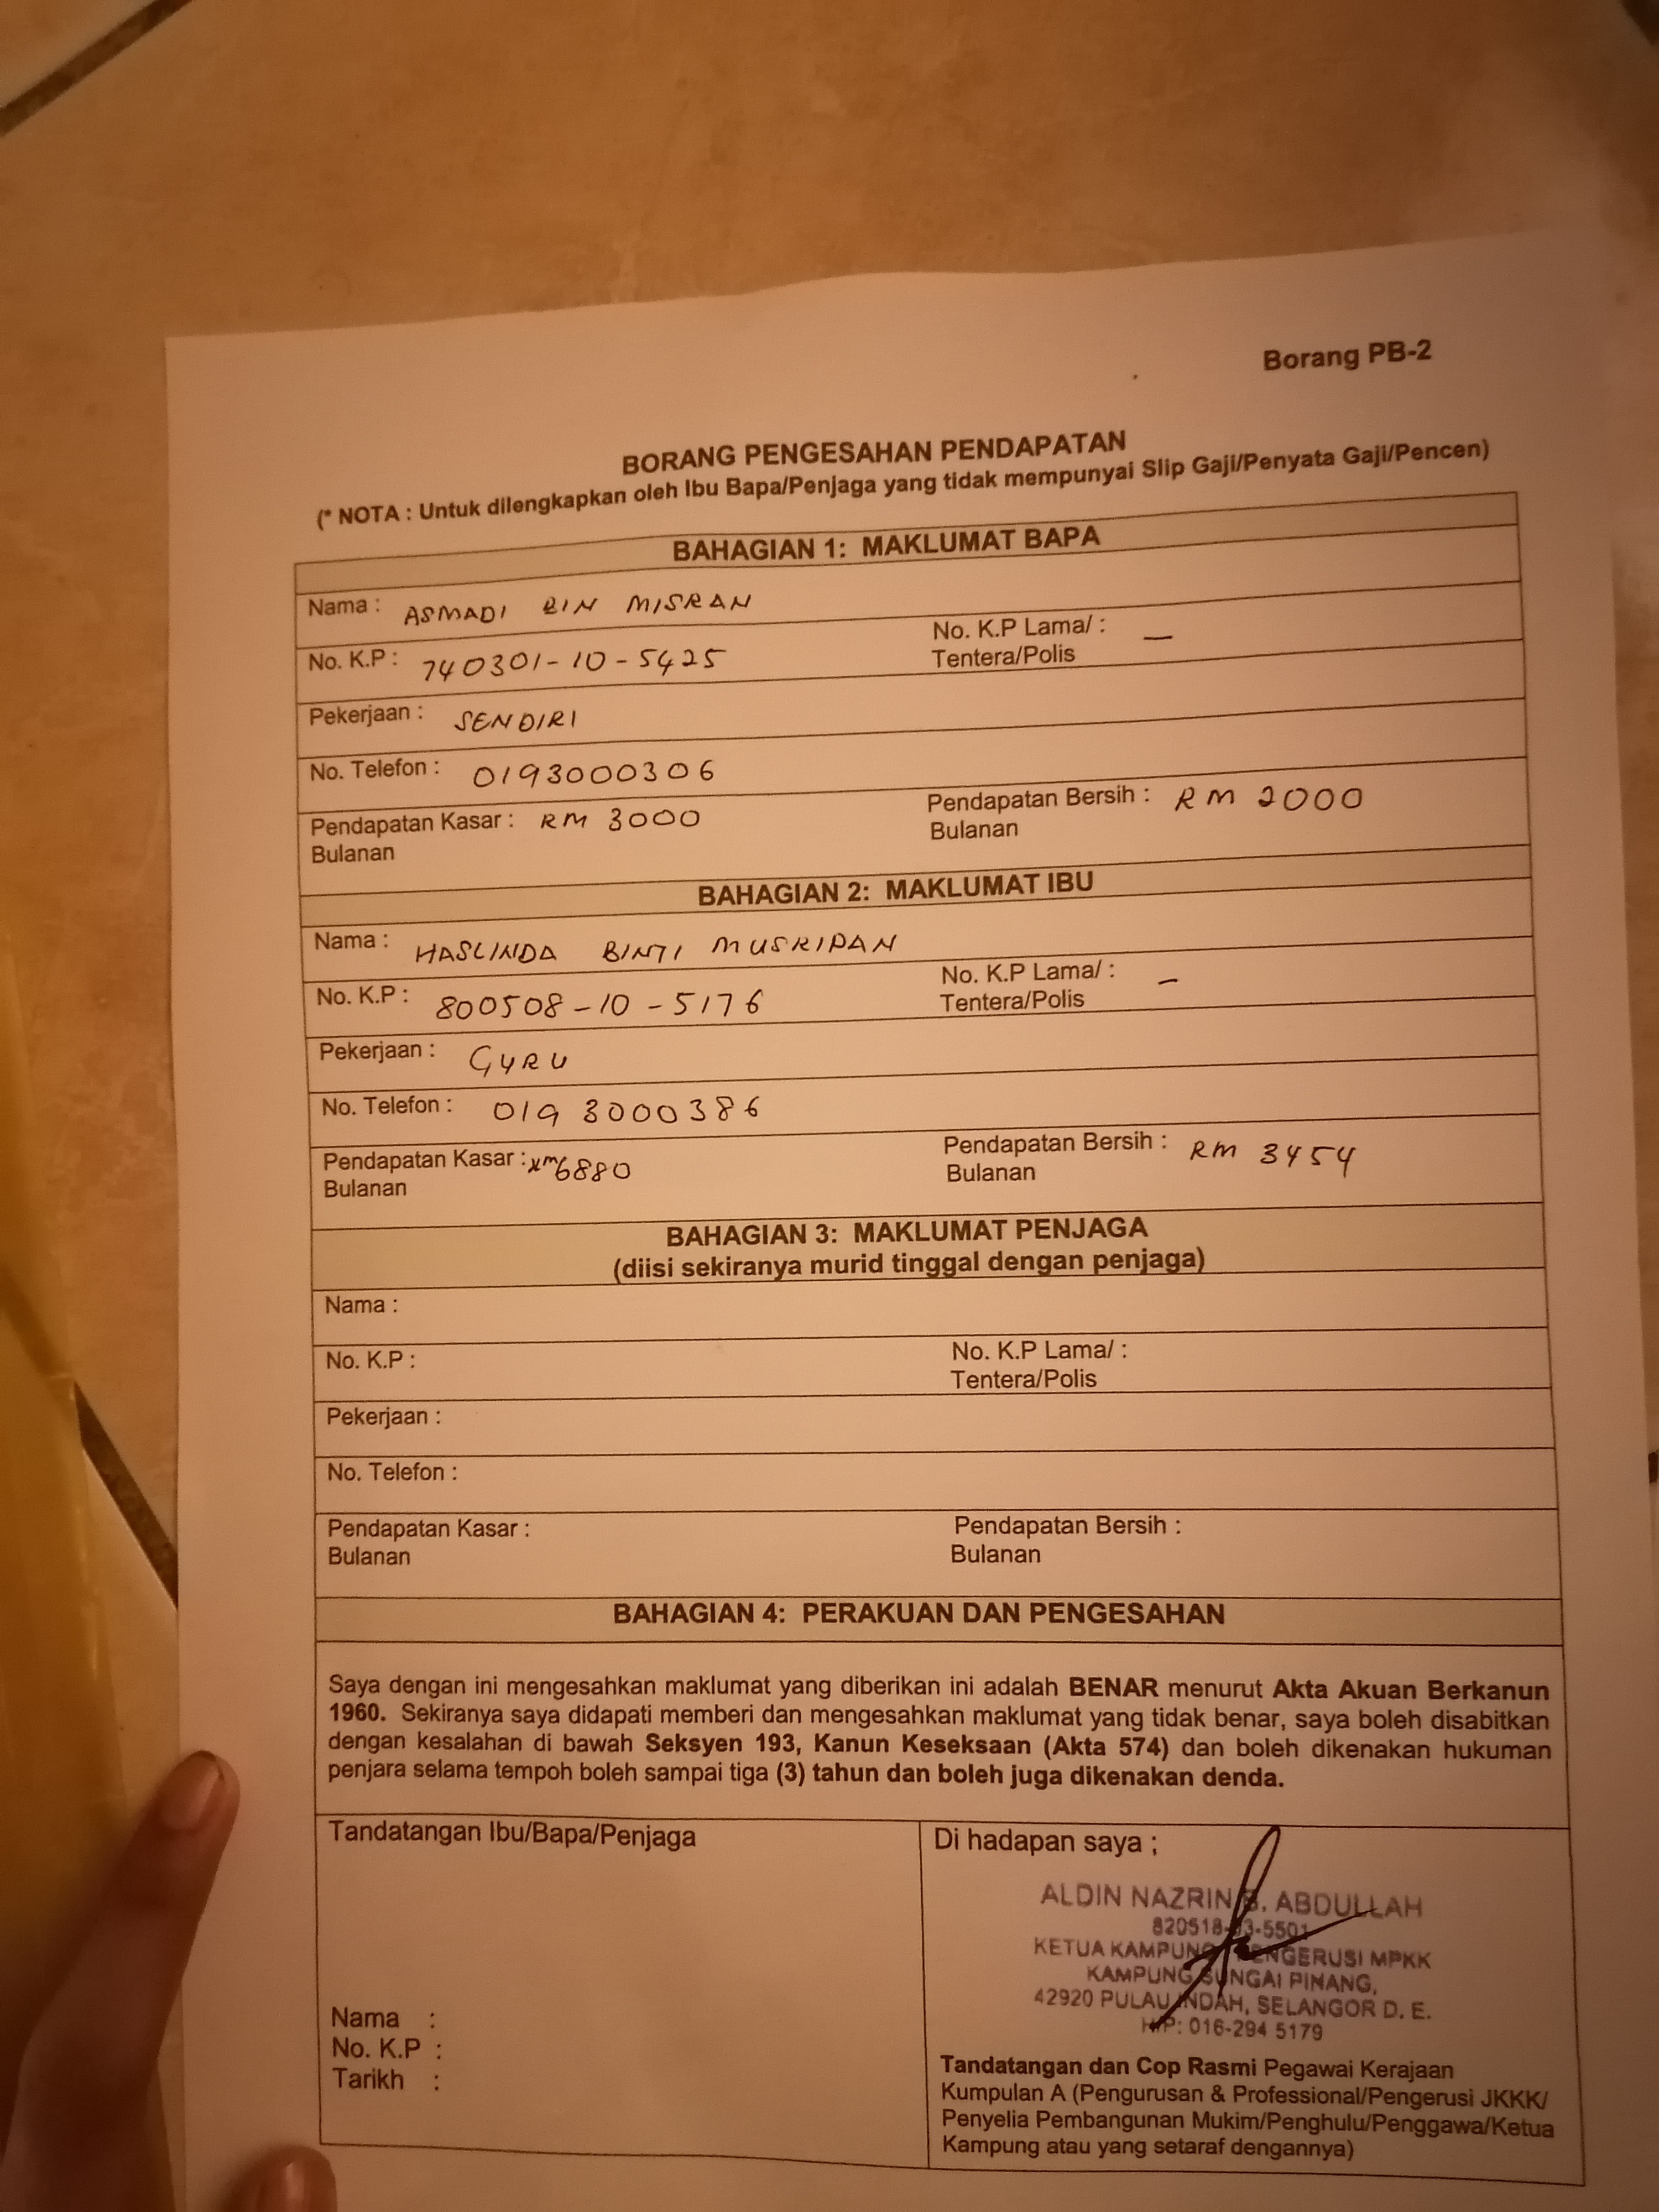 Borang PB-2
BORANG PENGESAHAN PENDAPATAN
(* NOTA : Untuk dilengkapkan oleh Ibu Bapa/Penjaga yang tidak mempunyai Slip Gaji/Penyata Gaji/Pencen)
BAHAGIAN 1: MAKLUMAT BAPA
Nama : ASMADI BIN MISRAN
No. K.P : 740301-10-5425 No. K.P Lama/ : —
Tentera/Polis
Pekerjaan : SENDIRI
No. Telefon : 0193000306
Pendapatan Kasar : RM 3000 Pendapatan Bersih : RM 2000
Bulanan Bulanan
BAHAGIAN 2: MAKLUMAT IBU
Nama : HASLINDA BINTI MUSRIPAN
No. K.P : 800508-10-5176 No. K.P Lama/ : —
Tentera/Polis
Pekerjaan : GURU
No. Telefon : 019 3000386
Pendapatan Kasar : RM 6880 Pendapatan Bersih : RM 3454
Bulanan Bulanan
BAHAGIAN 3: MAKLUMAT PENJAGA
(diisi sekiranya murid tinggal dengan penjaga)
Nama :
No. K.P : No. K.P Lama/ :
Tentera/Polis
Pekerjaan :
No. Telefon :
Pendapatan Kasar : Pendapatan Bersih :
Bulanan Bulanan
BAHAGIAN 4: PERAKUAN DAN PENGESAHAN
Saya dengan ini mengesahkan maklumat yang diberikan ini adalah BENAR menurut Akta Akuan Berkanun
1960. Sekiranya saya didapati memberi dan mengesahkan maklumat yang tidak benar, saya boleh disabitkan
dengan kesalahan di bawah Seksyen 193, Kanun Keseksaan (Akta 574) dan boleh dikenakan hukuman
penjara selama tempoh boleh sampai tiga (3) tahun dan boleh juga dikenakan denda.
Tandatangan Ibu/Bapa/Penjaga
Nama :
No. K.P :
Tarikh :
Di hadapan saya ;
ALDIN NAZRIN B. ABDULLAH
KETUA KAMPUNG PENGERUSI MPKK
KAMPUNG SUNGAI PINANG,
42920 PULAU INDAH, SELANGOR D. E.
H/P: 016-294 5179
Tandatangan dan Cop Rasmi Pegawai Kerajaan
Kumpulan A (Pengurusan & Professional/Pengerusi JKKK/
Penyelia Pembangunan Mukim/Penghulu/Penggawa/Ketua
Kampung atau yang setaraf dengannya)